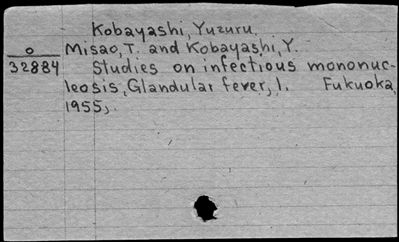 Kobayashi, Yuzuru
o Misao, T. and Kobayashi, Y.
32884 Studies on infectious mononuc-
leosis, Glandular fever, 1. Fukuoka,
1955,.